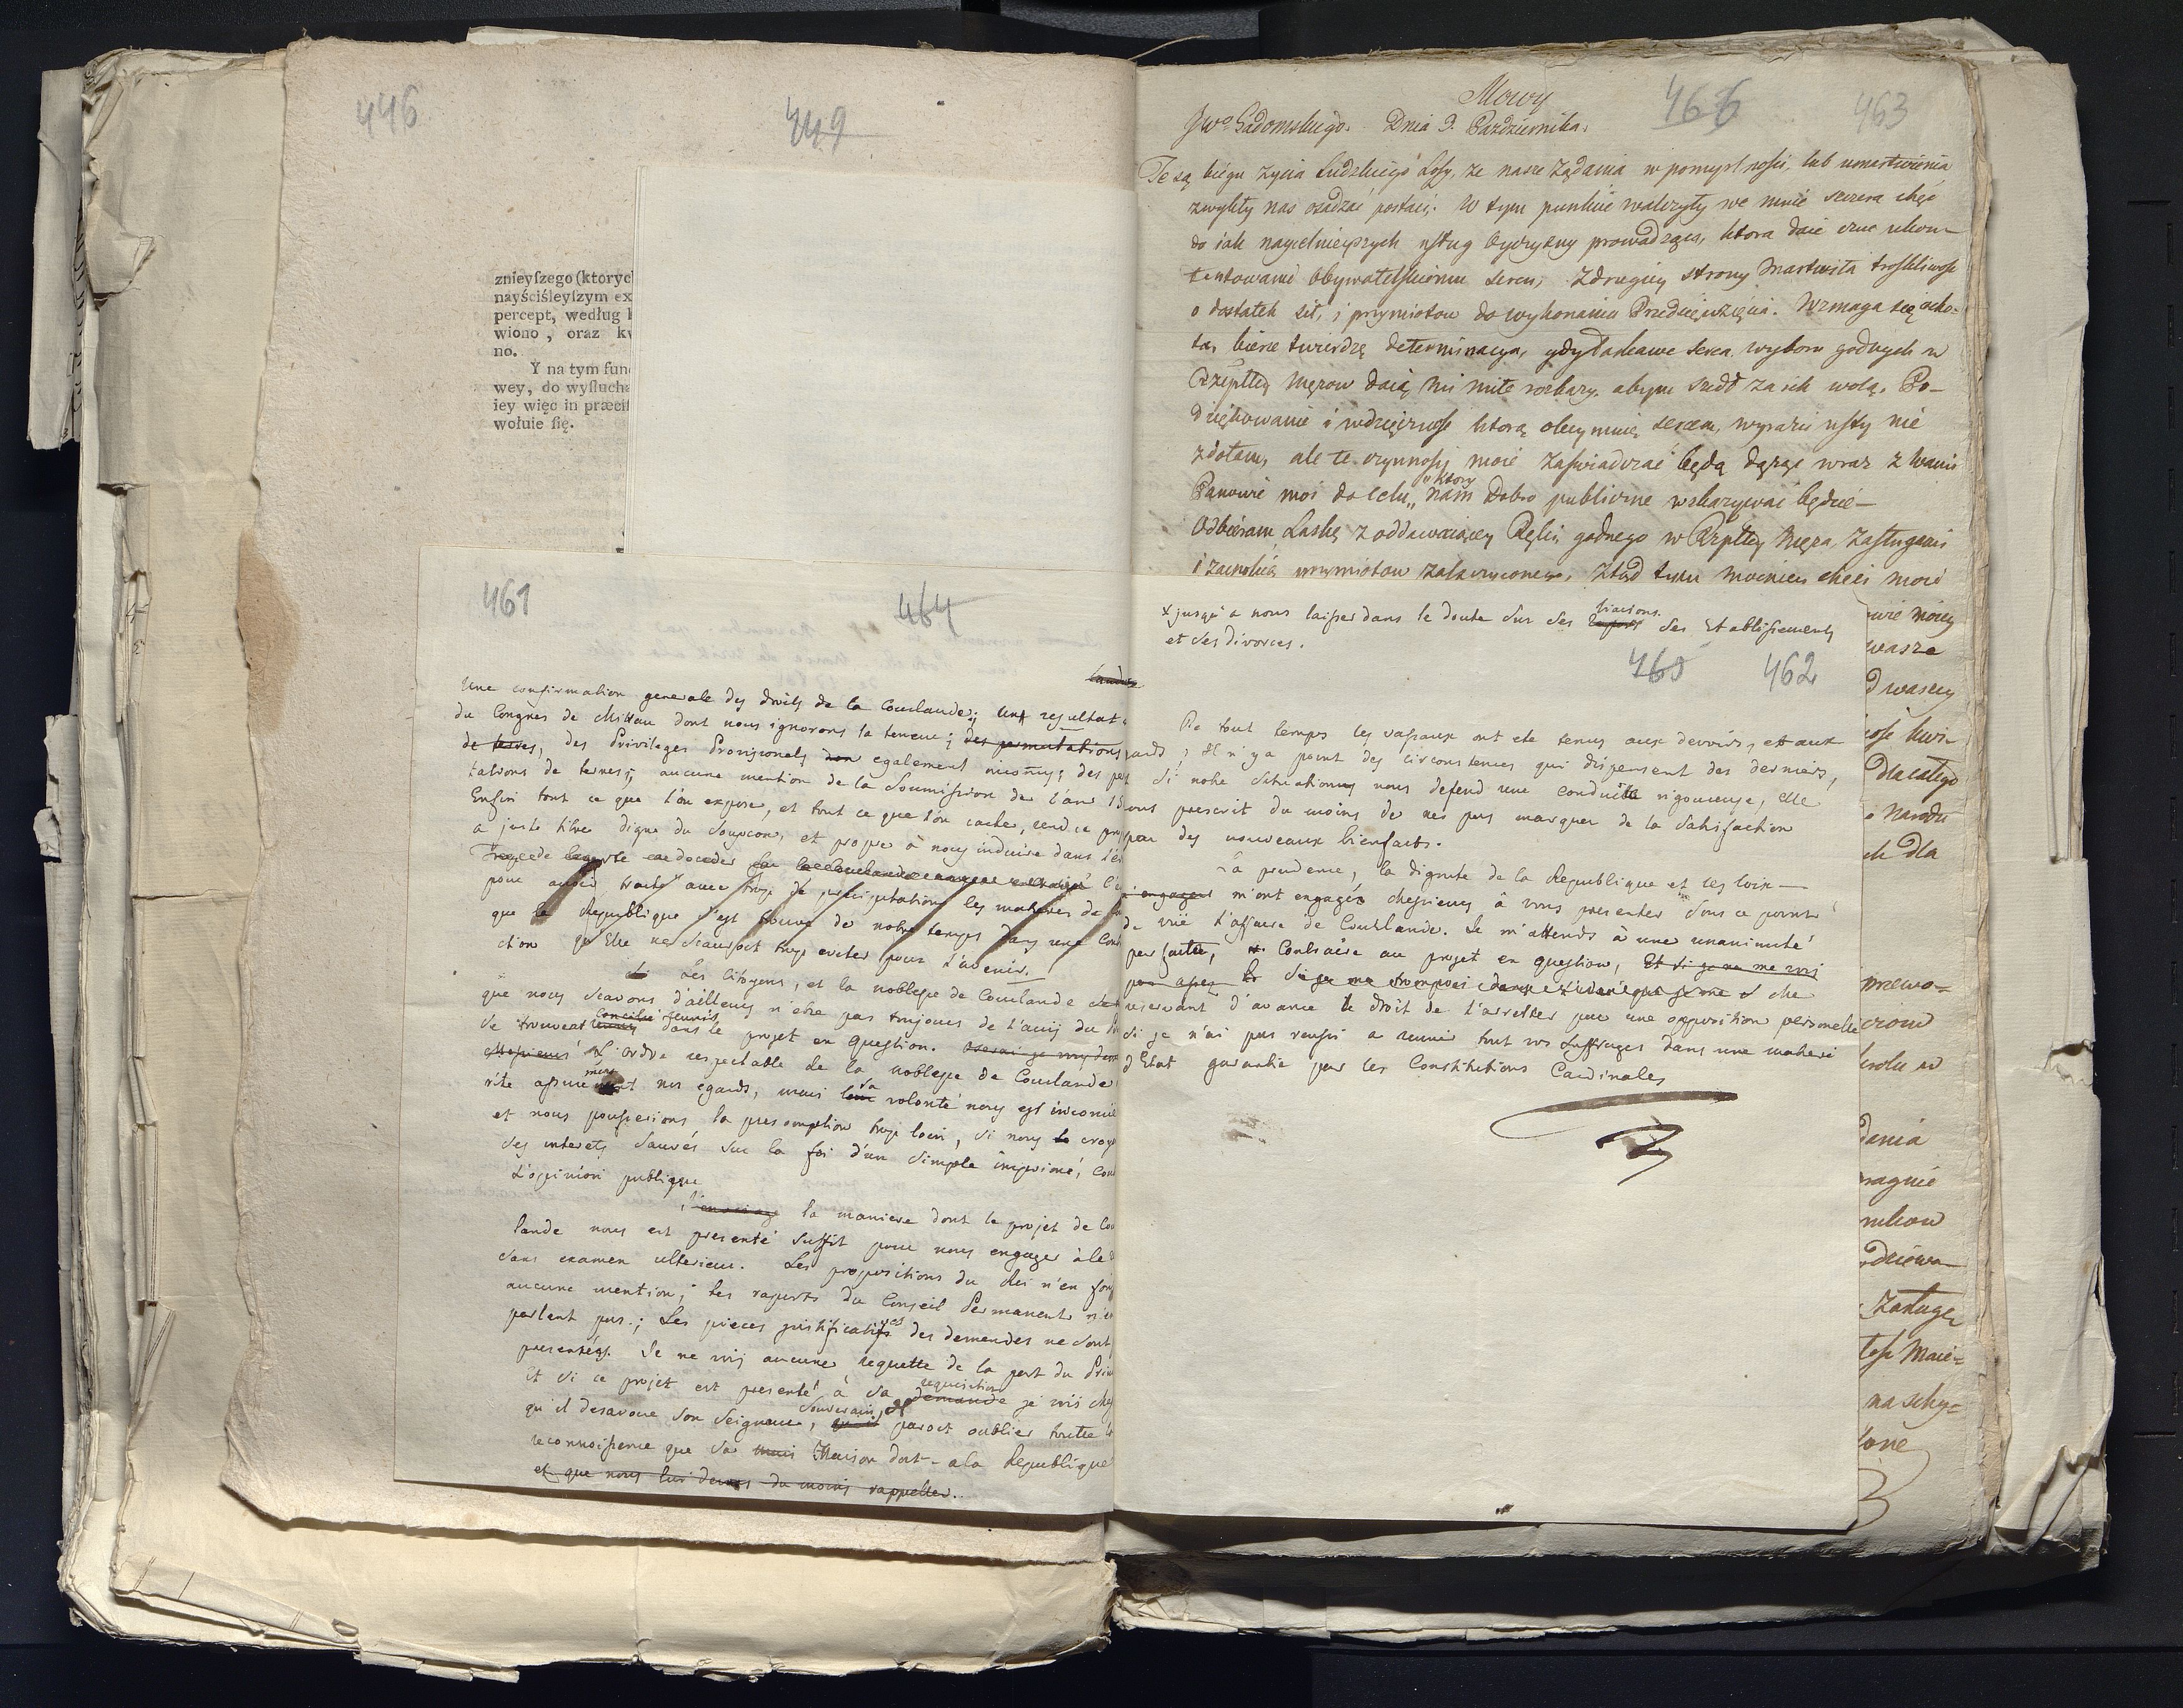 446
449
znieyſzego (ktorych
nayściśleyſzym ex
percept, według k
wiono, oraz kw
no.
Y na tym fund
wey, do wyſłucha
iey więc in præciſ
wołuie ſię.
461
464
Une confirmation generale des droits de la Courlande; un resultat
du Congres de Mittau dont nous ignorons la teneur; des permutations
de terres, des Privileges Provisionels egalement inconnus; des per
tations de terres; aucune mention de la Soumission de l'an
Enfin tout ce que l'on expose, et tout ce que l'on cache, rend ce pro
a juste titre digne du Soupcon, et propre à nous induire dans l'er
pour avoir traité avec trop de precipitation les matieres de
que la Republique s'est trouvé de notre temps dans une
ction qu'Elle ne Scauroit trop eviter pour l'avenir.
Les Citoyens, et la noblesse de Courlande
que nous Scavons d'ailleurs n'etre pas toujours de l'avis du
se trouvent Conciliés reunis dans le projet en question.
Messieurs L'ordre respectable de la noblesse de Courlande
rite assurement nos egards, mais sa volonté nous est inconnue
et nous pousserions la presomption trop loin, si nous croy
ses interets Sauvés sur la foi d'un Simple imprimé,
L'opinion publique
la maniere dont le projet de Cour
lande nous est presenté Suffit pour nous engager à le
Sans examen ulterieur. Les propositions du Roi n'en font
aucune mention; les raports du Conseil Permanent n'en
parlent pas; Les pieces justificatives des demandes ne sont
presentés. Je ne vois aucune requette de la part du Prin
Et si ce projet est presenté à sa requisition demande je vois
qu'il desavoue son Seigneur Souverain, et paroit oublier toutte
reconnoissence que sa Maison doit a la Republique
et que nous lui devons du moins rappeller.
Mowy
466
463
JWo Gadomskiego. Dnia 9. Pazdziernika.
Te są biegu życia Ludzkiego Losy, że nasze żądania w pomyslnosci, lub umartwienia
zwykły nas osadzać postaci. W tym punkcie walczyły we mnie szczera chęć
do iak nayczelnieyszych usług Oyczyzny prowadząca, ktora daie czuc ukon-
tentowanie Obywatelskiemu sercu; Zdrugiey strony Martwiła troskliwosc
o dostatek sił, i przymiotow do wykonania Przedsięwzięcia. Wzmaga się ocho-
ta, bierze twierdzę determinacya, gdy łaskawe serca wyboru godnych w
Rzepltey Męzow daią mi miłe rozkazy, abym szedł za ich wolą. Po-
dziękowanie i wdzięcznosc ktorą obeymuię sercem, wyrazic usty nie
zdołam, ale te czynnosci moie zaswiadczać będą dążąc wraz z Wami
Panowie moi do celu, ktory nam Dobro publiczne wskazywać będzie—
Odbieram Laskę z oddawaiącey Ręki, godnego w Rzpltey Męza, Zasługami
i zacnoscią przymiotow zaszczyconego, Ztąd tym mocniey chęci moie
jusqu'a nous laisser dans le doute sur ses liaisons ses Etablissements
et ses divorces.
465
462
De tout temps les vassaux ont eté tenus aux devoirs, et aux
gards; Il n'y a point des circonstences qui dispensent des derniers,
Si notre Situation nous defend une conduite rigoureuse, elle
ous prescrit du moins de ne pas marquer de la Satisfaction
par des nouveaux bienfaits.
La prudence, la dignité de la Republique et ses loix—
m'ont engagés Messieurs à vous presenter sous ce point
de vuë l'affaire de Courlande. Je m'attends à une unanimité
parfaitte, Contraire au projet en question, Et si je ne me vois
reservant d'avance le droit de l'arretter par une opposition personelle
si je n'ai pas reussi a reunir tout vos Suffrages dans une matiere
d'Etat garantie par les Constitutions Cardinales
wasze
dwaszey
dlacałego
Narodu
ch dla
przewo=
dania
Zasługę
na schy=